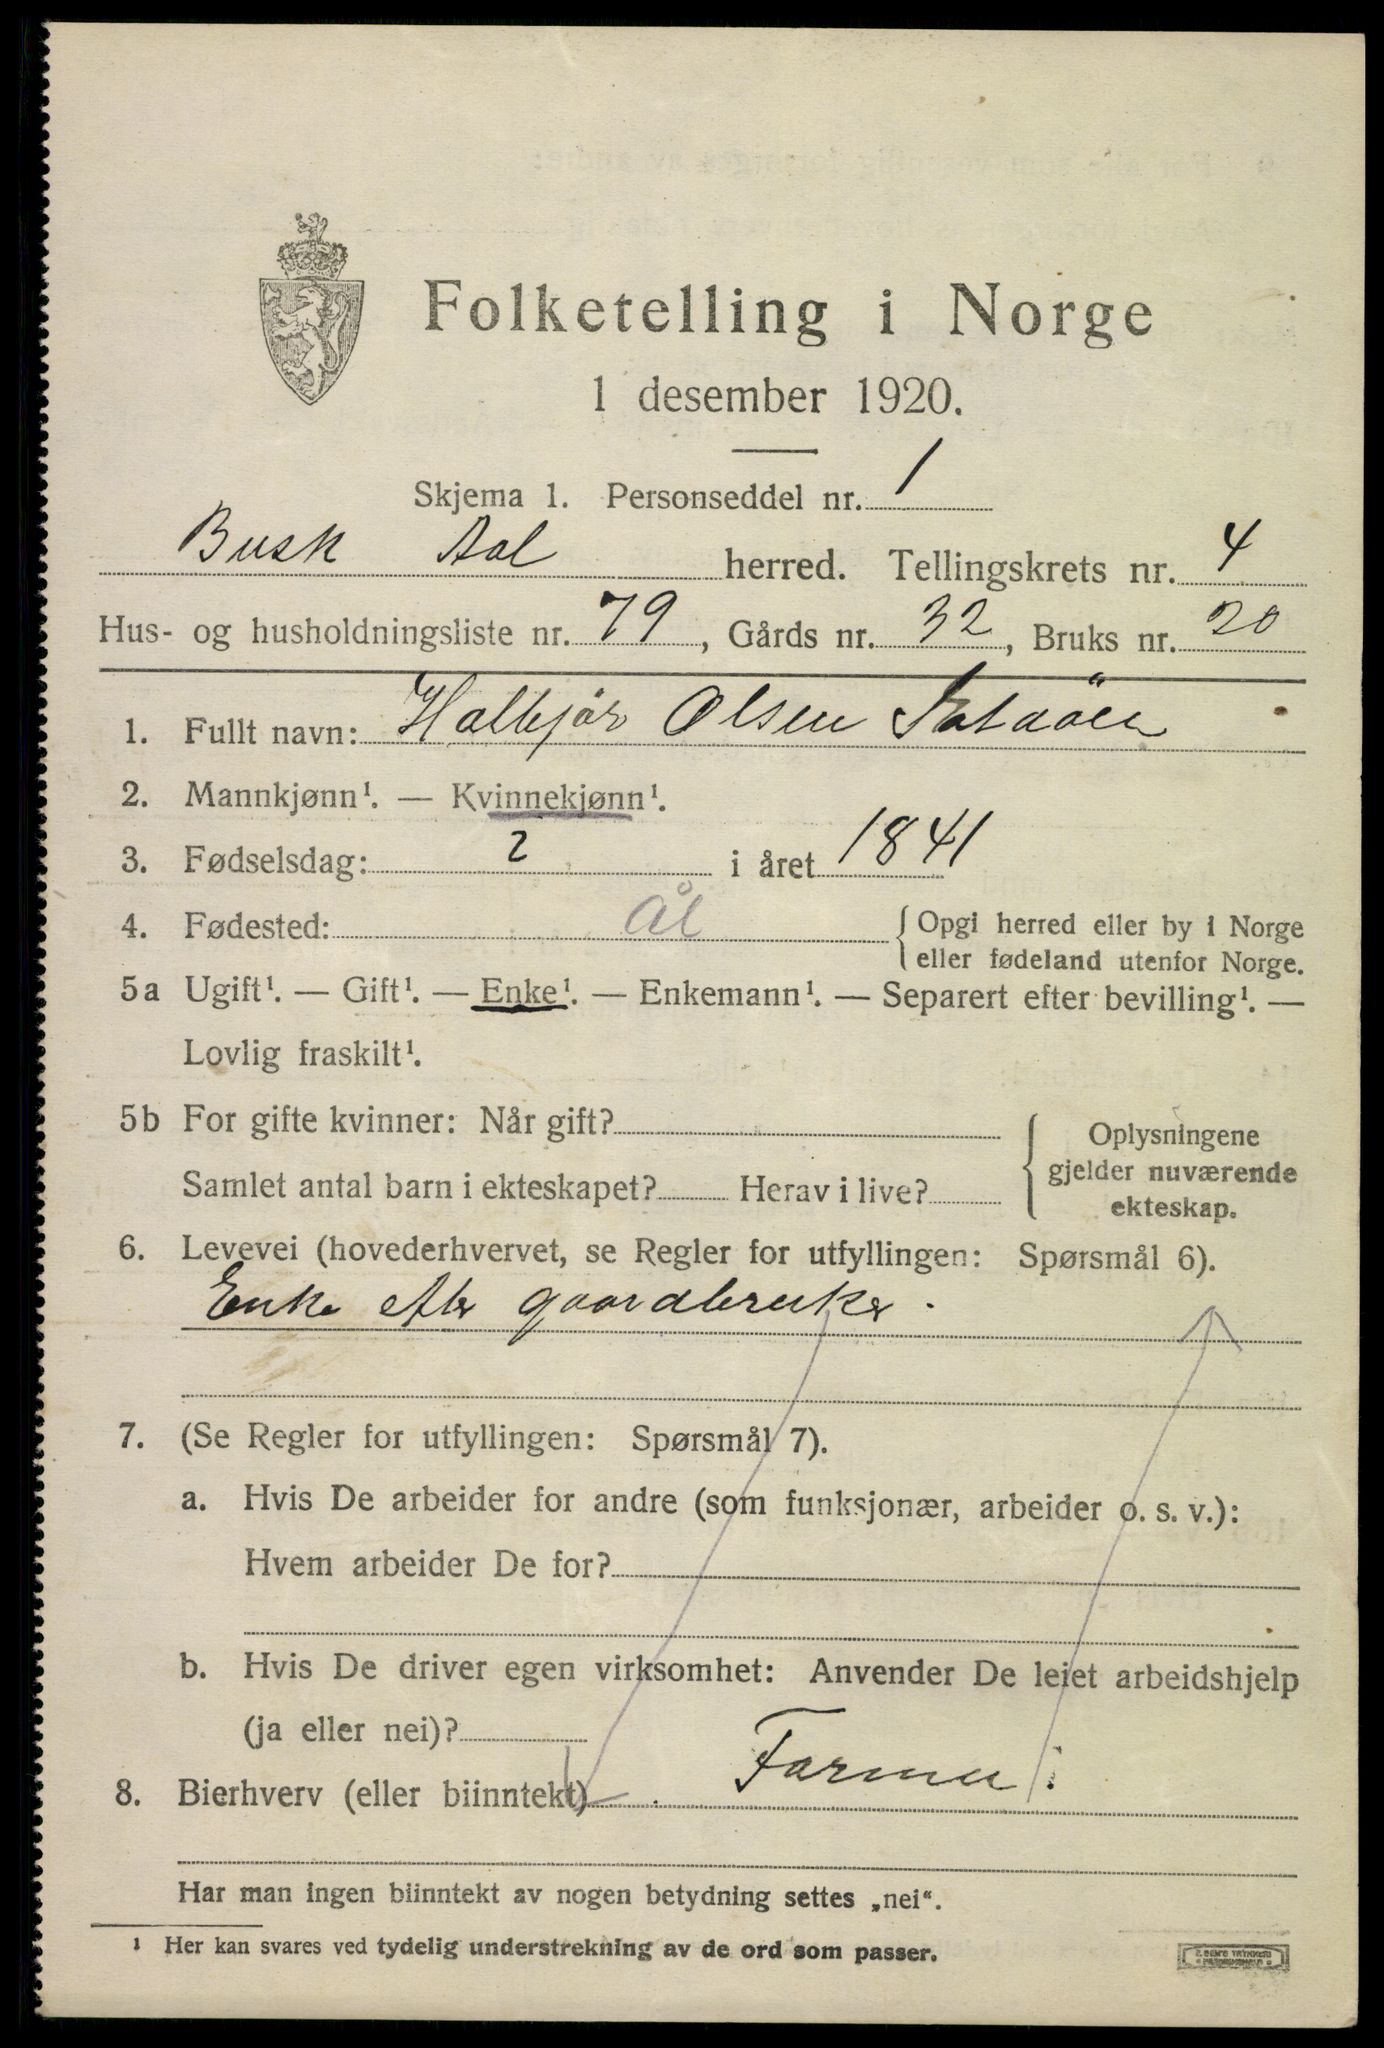 Folketelling i Norge
1 desember 1920.
Skjema 1. Personseddel nr. 1
Busk Aal herred. Tellingskrets nr. 4
Hus- og husholdningsliste nr. 79, Gårds nr. 32, Bruks nr. 20
1. Fullt navn: Olsen
2. Mannkjønn¹. — Kvinnekjønn¹.
3. Fødselsdag: 2 i året 1841
4. Fødested: Ål { Opgi herred eller by i Norge
eller fødeland utenfor Norge.
5a Ugift¹. — Gift¹. — Enke¹. — Enkemann¹. — Separert efter bevilling¹. —
Lovlig fraskilt¹.
5b For gifte kvinner: Når gift?
Samlet antal barn i ekteskapet? Herav i live?
Oplysningene
gjelder nuværende
ekteskap.
6. Levevei (hovederhvervet, se Regler for utfyllingen: Spørsmål 6).
Enke efter gaardbruker.
7. (Se Regler for utfyllingen: Spørsmål 7).
a. Hvis De arbeider for andre (som funksjonær, arbeider o. s. v.):
Hvem arbeider De for?
b. Hvis De driver egen virksomhet: Anvender De leiet arbeidshjelp
(ja eller nei)?
8. Bierhverv (eller biinntekt)
Har man ingen biinntekt av nogen betydning settes „nei“.
¹ Her kan svares ved tydelig understrekning av de ord som passer.